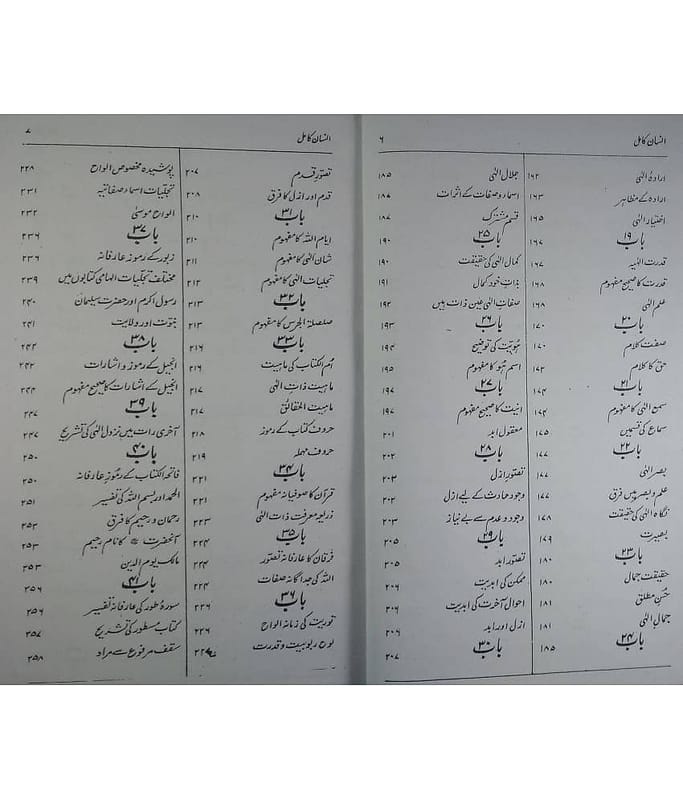 انسان کامل ۶
ارادۂ الٰہی ۱۶۲
ارادہ کے مظاہر ۱۶۳
اختیار الٰہی ۱۶۵
باب ۱۹ ۱۶۷
قدرت الٰہیہ ۱۶۷
قدرت کا صحیح مفہوم ۱۶۸
علم الٰہی ۱۶۸
باب ۲۰ ۱۷۰
صفت کلام ۱۷۰
حق کا کلام
باب ۲۱ ۱۷۴
سمع الٰہی کا مفہوم ۱۷۴
سماع کی قسمیں ۱۷۵
باب ۲۲ ۱۷۷
بصر الٰہی ۱۷۷
علم و بصر میں فرق ۱۷۷
نگاہ الٰہی کی حقیقت ۱۷۸
بصیرت ۱۷۹
باب ۲۳ ۱۸۰
حقیقت جمال ۱۸۰
حُسنِ مطلق ۱۸۱
جمال الٰہی ۱۸۱
باب ۲۴ ۱۸۵
جلال الٰہی ۱۸۵
اسماء و صفات کے اثرات ۱۸۷
قسم مشترک ۱۸۷
باب ۲۵ ۱۹۰
کمال الٰہی کی حقیقت ۱۹۰
بذات خود کمال ۱۹۱
صفاتِ الٰہی عین ذات ہیں ۱۹۲
باب ۲۶ ۱۹۳
ہُویت کی توضیح ۱۹۴
اسم ہُو کا مفہوم ۱۹۵
باب ۲۷ ۱۹۷
انیت کا صحیح مفہوم ۱۹۷
معقول ابد ۲۰۱
باب ۲۸ ۲۰۲
تصورِ ازل ۲۰۲
وجود حادث کے لیے ازل ۲۰۲
وجود و عدم سے بے نیاز ۲۰۳
باب ۲۹ ۲۰۵
تصور ابد ۲۰۵
ممکن کی ابدیت ۲۰۶
احوال آخرت کی ابدیت ۲۰۶
ازل اور ابد ۲۰۶
باب ۳۰ ۲۰۷
انسان کامل ۷
تصوّرِ قدم ۲۰۷
قدم اور ازل کا فرق ۲۰۸
باب ۳۱ ۲۱۰
ایام اللہ کا مفہوم ۲۱۰
شان الٰہی کا مفہوم ۲۱۱
تجلیات الٰہی کا مفہوم ۲۱۲
باب ۳۲ ۲۱۳
صلصلۃ الجرس کا مفہوم ۲۱۳
باب ۳۳ ۲۱۶
اُم الکتاب کی ماہیت ۲۱۶
ماہیت ذات الٰہی ۲۱۷
ماہیت الحقائق ۲۱۷
حروف کتاب کے رموز ۲۱۸
حروف مہملہ ۲۱۹
باب ۳۴ ۲۲۱
قرآن کا صوفیانہ مفہوم ۲۲۱
ذریعہ معرفت ذات الٰہی ۲۲۳
باب ۳۵ ۲۲۴
فرقان کا عارفانہ تصور ۲۲۴
اللہ کی جداگانہ صفات
باب ۳۶ ۲۲۶
توریت کی زمانہ الواح ۲۲۶
لوح ربوبیت و قدرت
پوشیدہ مخصوص الواح ۲۲۸
تجلیات اسماء صفاتیہ ۲۳۱
الواح موسیٰ ۲۳۲
باب ۳۷ ۲۳۶
زبور کے رموز عارفانہ ۲۳۶
مختلف تجلّیات الہامی کتابوں میں ۲۳۹
رسول اکرم اور حضرت سلیمان ۲۴۰
نبوّت اور ولایت ۲۴۱
باب ۳۸
انجیل کے رموز و اشارات
انجیل کے اشارات کا صحیح مفہوم ۲۴۴
باب ۳۹ ۲۴۷
آخری رات میں نزول الٰہی کی تشریح ۲۴۷
باب ۴۰ ۲۵۰
فاتحۃ الکتاب کے رموز عارفانہ ۲۵۰
الحمد اور بسم اللہ کی تفسیر ۲۵۱
رحمان و رحیم کا فرق ۲۵۲
آنحضرت ﷺ کا نام رحیم ۲۵۳
مالک یوم الدین ۲۵۳
باب ۴۱ ۲۵۶
سورۂ طور کی عارفانہ تفسیر ۲۵۶
کتاب مسطور کی تشریح ۲۵۷
سقف مرفوع سے مراد ۲۵۸